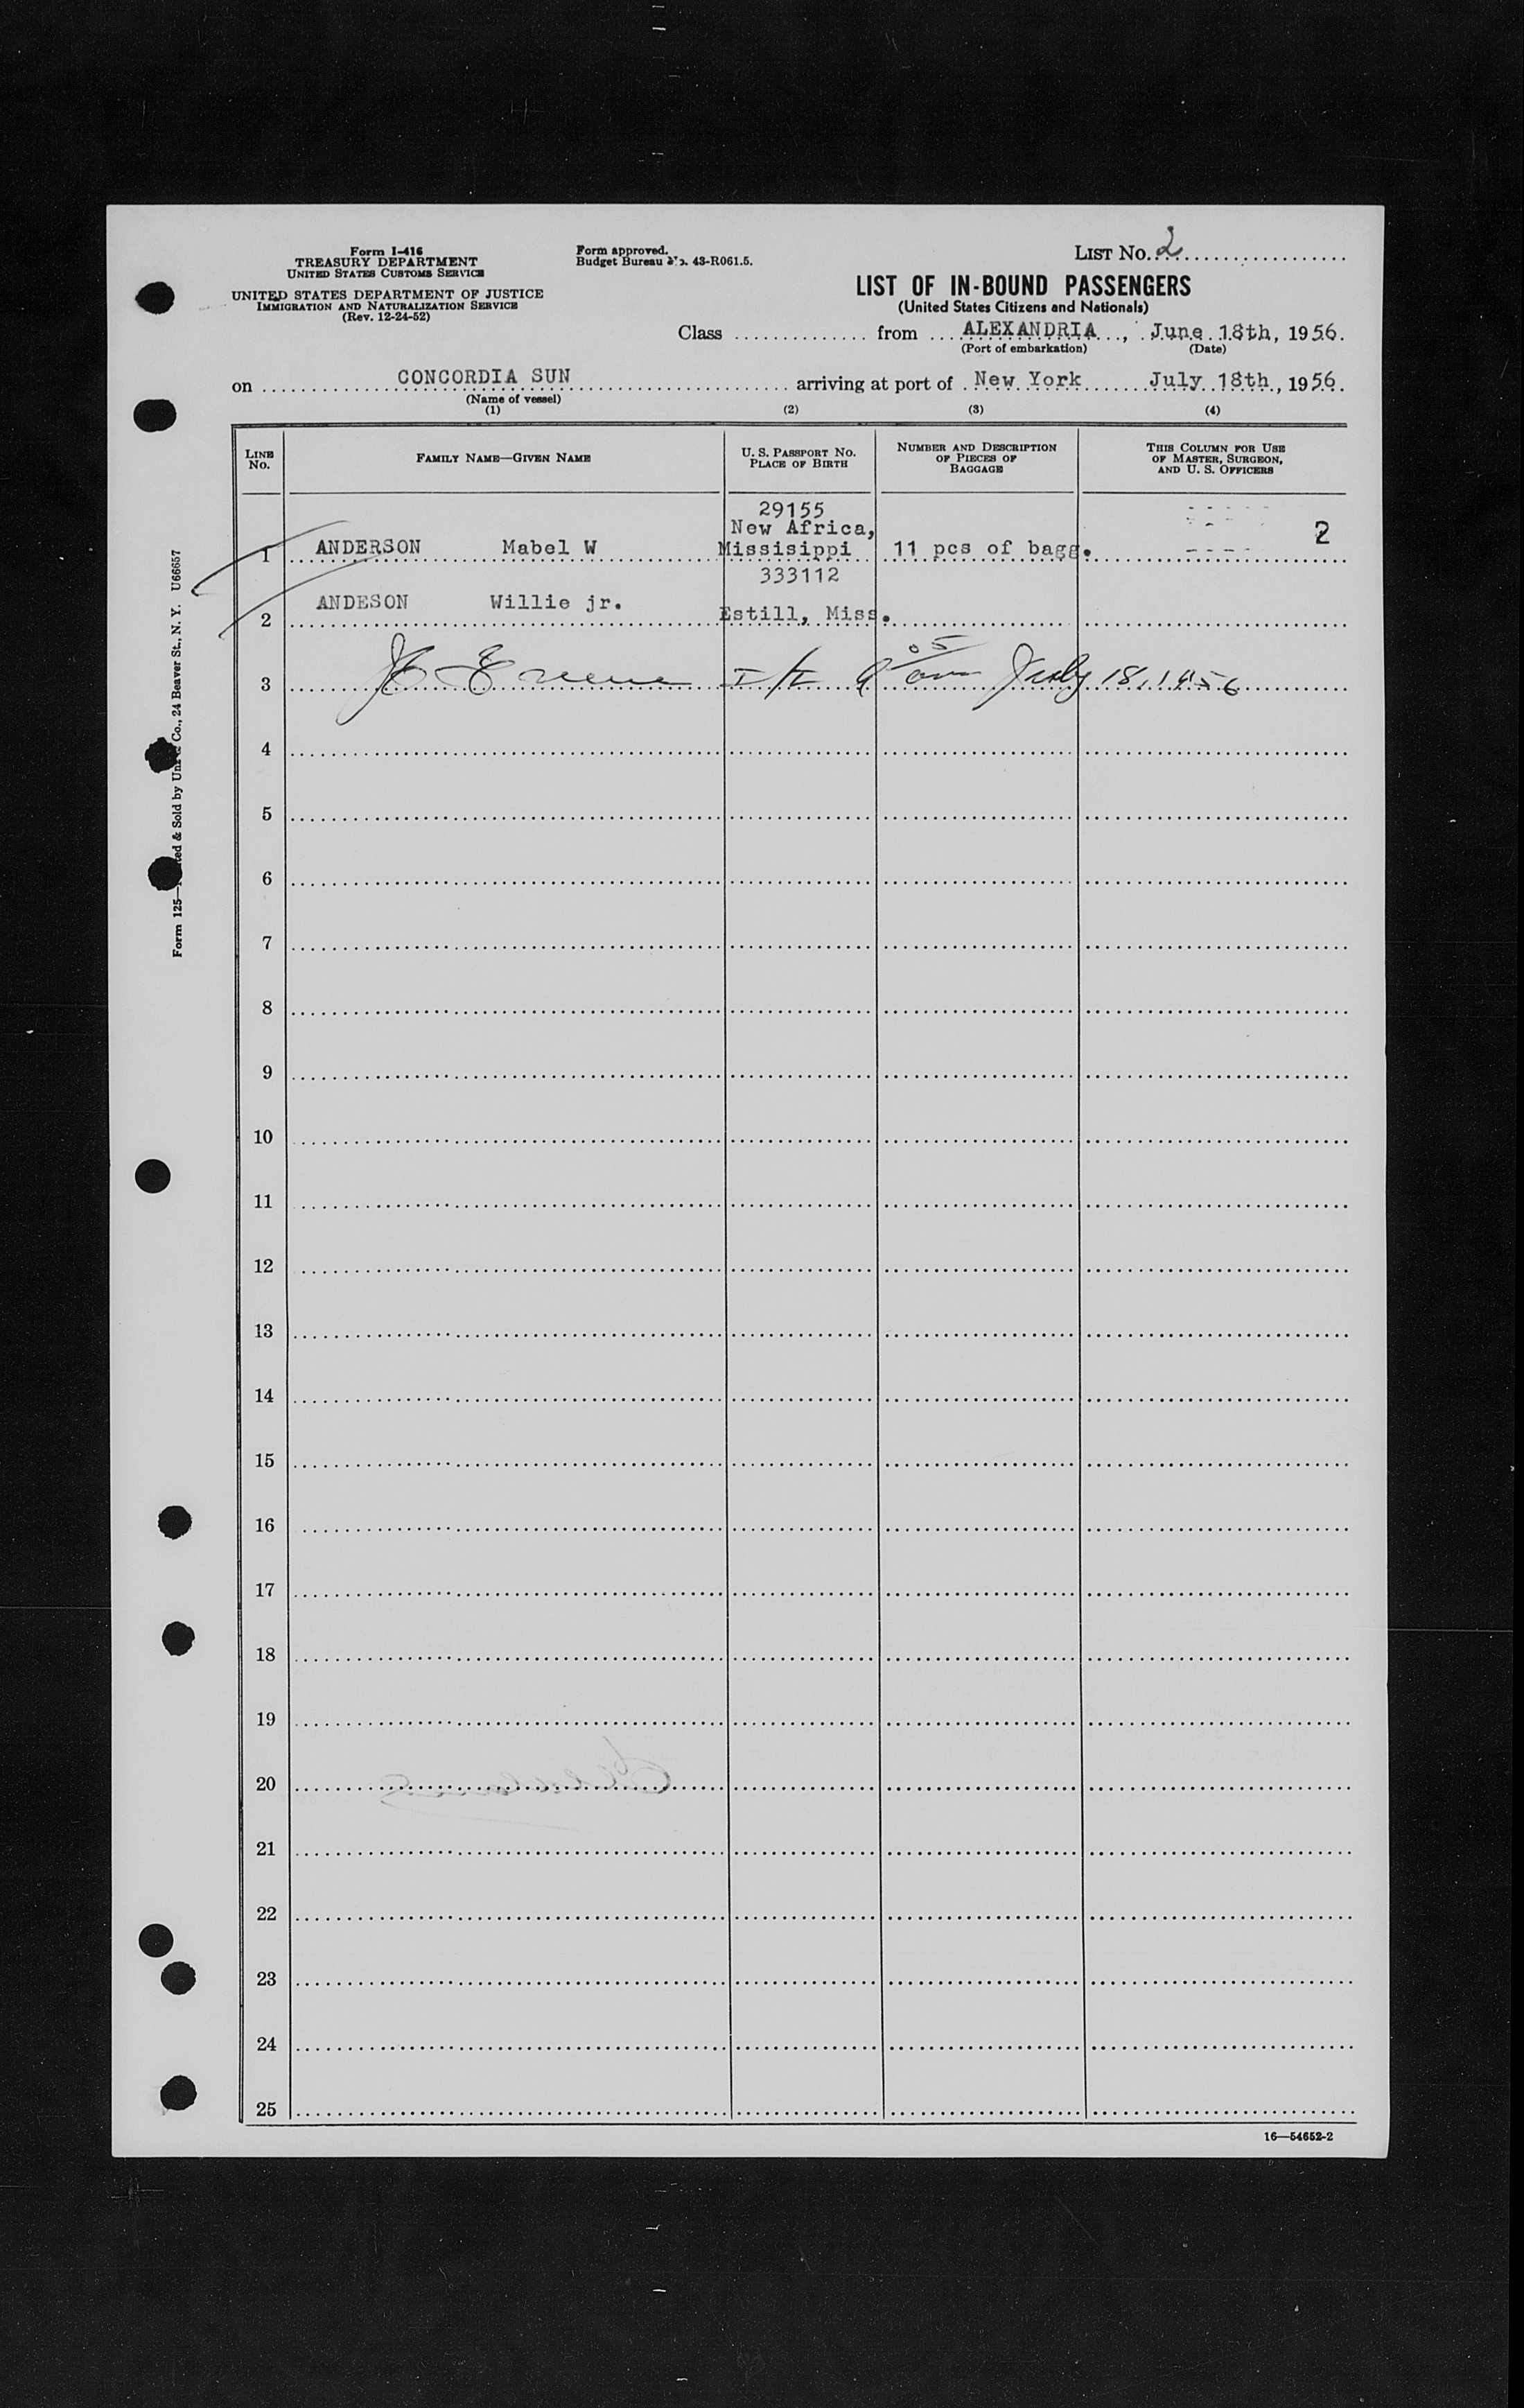 Form I-416
TREASURY DEPARTMENT
UNITED STATES CUSTOMS SERVICE
UNITED STATES DEPARTMENT OF JUSTICE
IMMIGRATION AND NATURALIZATION SERVICE
(Rev. 12-24-52)
Form approved.
Budget Bureau No. 43-R061.5.
LIST No. 2
LIST OF IN-BOUND PASSENGERS
(United States Citizens and Nationals)
Class from ALEXANDRIA, June 18th, 1956.
(Port of embarkation) (Date)
on CONCORDIA SUN arriving at port of New York July 18th, 1956.
(Name of vessel)
(1) (2) (3) (4)
LINE No. FAMILY NAME—GIVEN NAME U. S. PASSPORT NO. PLACE OF BIRTH NUMBER AND DESCRIPTION OF PIECES OF BAGGAGE THIS COLUMN FOR USE OF MASTER, SURGEON, AND U. S. OFFICERS
29155
New Africa,
1 ANDERSON Mabel W Missisippi 11 pcs of bagg. 2
333112
2 ANDESON Willie jr. Estill, Miss.
3 9 05 am July 18, 1956
4
5
6
7
8
9
10
11
12
13
14
15
16
17
18
19
20
21
22
23
24
25
16—54652-2
Form 125— & Sold by Co., 24 Beaver St., N. Y. U66657